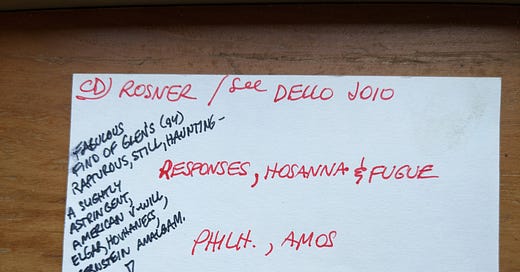 CD) ROSNER / See DELLO JOIO
FABULOUS
FIND OF GLEN'S (94)
RAPTUROUS, STILL, HAUNTING -
A SLIGHTLY
ASTRINGENT,
AMERICAN V-WILL,
ELGAR, HOVHANESS,
BERNSTEIN AMALGAM.
RESPONSES, HOSANNA & FUGUE
PHILH., AMOS